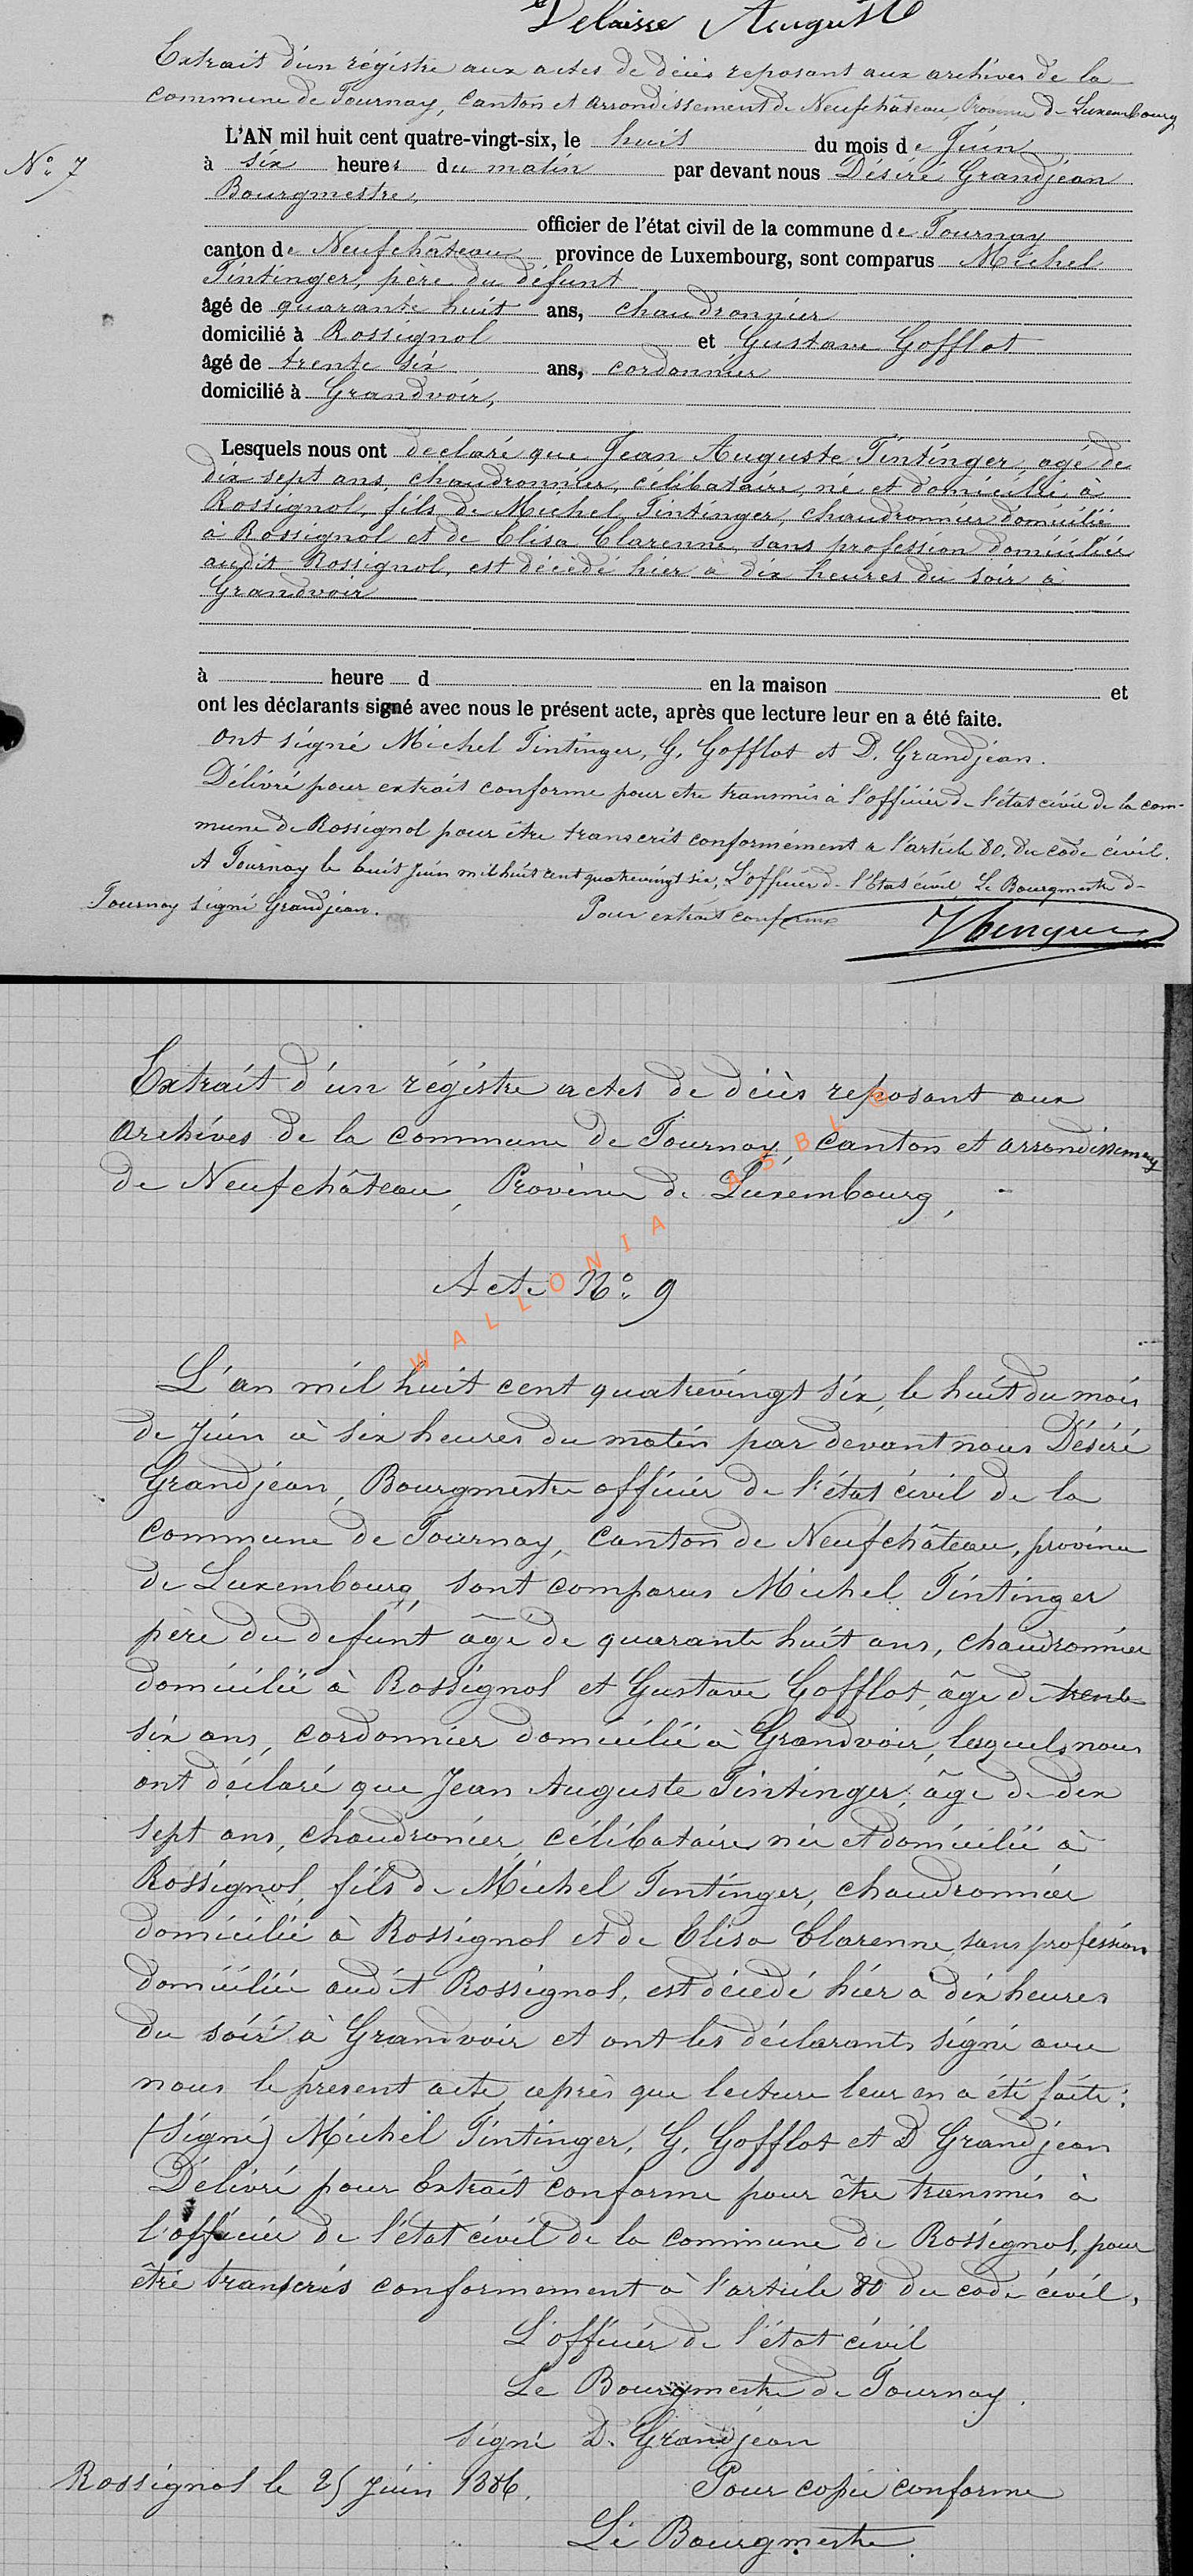 Delaisse Auguste
Extrait d'un régistre aux actes de décès reposant aux archives de la
commune de Tournay, Canton et arrondissement de Neufchâteau, Province de Luxembourg
L'AN mil huit cent quatre-vingt-six, le huit du mois de Juin
N° 7
à six heures du matin par devant nous Désiré Grandjean
Bourgmestre,
officier de l'état civil de la commune de Tournay
canton de Neufchâteau province de Luxembourg, sont comparus Michel
Tintinger, père du défunt
âgé de quarante huit ans, chaudronnier
domicilié à Rossignol et Gustave Gofflot
âgé de trente six ans, cordonnier
domicilié à Grandvoir,
Lesquels nous ont déclaré que Jean Auguste Tintinger, agé de
dix sept ans, chaudronnier, célibataire, né et domicilié à
Rossignol, fils de Michel Tintinger, chaudronnier domicilié
à Rossignol et de Elisa Clarenne, sans profession domiciliée
audit Rossignol, est décédé hier à dix heures du soir à
Grandvoir
à heure d en la maison et
ont les déclarants signé avec nous le présent acte, après que lecture leur en a été faite.
ont signé Michel Tintinger, G. Gofflot et D. Grandjean.
Délivré pour extrait conforme pour etre transmis à l'officier de l'état civil de la com-
mune de Rossignol pour être transcrit conformément a l'article 80. du code civil.
A Tournay le huit Juin mil huit cent quatrevingt six, L'officier de l'Etat civil Le Bourgmestre de
Tournay signé Grandjean. Pour extrait conforme
Extrait d'un régistre actes de décès reposant aux
archives de la commune de Tournay, Canton et arrondissement
de Neufchâteau, Province de Luxembourg,
WALLONIA ASBL ©
Acte N° 9
L'an mil huit cent quatrevingt six, le huit du mois
de Juin à six heures du matin par devant nous Désiré
Grandjean, Bourgmestre officier de l'état civil de la
commune de Tournay, canton de Neufchâteau, province
de Luxembourg, sont comparus Michel Tintinger
père du défunt âgé de quarante huit ans, chaudronnier
domicilié à Rossignol et Gustave Gofflot, âgé de trente
six ans, cordonnier domicilié à Grandvoir, lesquels nous
ont déclaré que Jean Auguste Tintinger, âgé de dix
sept ans, chaudronier, célibataire née et domicilié à
Rossignol, fils de Michel Tintinger, chaudronnier
domicilié à Rossignol et de Elisa Clarenne, sans profession
domiciliée audit Rossignol, est décédé hier à dix heures
du soir à Grandvoir et ont les déclarants signé avec
nous le present acte après que lecture leur en a été faite:
(Signé) Michel Tintinger, G. Gofflot et D Grandjean
Délivré pour Extrait conforme pour être transmis à
l'officier de l'état civil de la commune de Rossignol, pour
être transcris conformement à l'article 80 du code civil,
L'officier de l'état civil
Le Bourgmestre de Tournay.
signé D. Grandjean
Rossignol le 25 Juin 1886. Pour copie conforme
Le Bourgmestre.